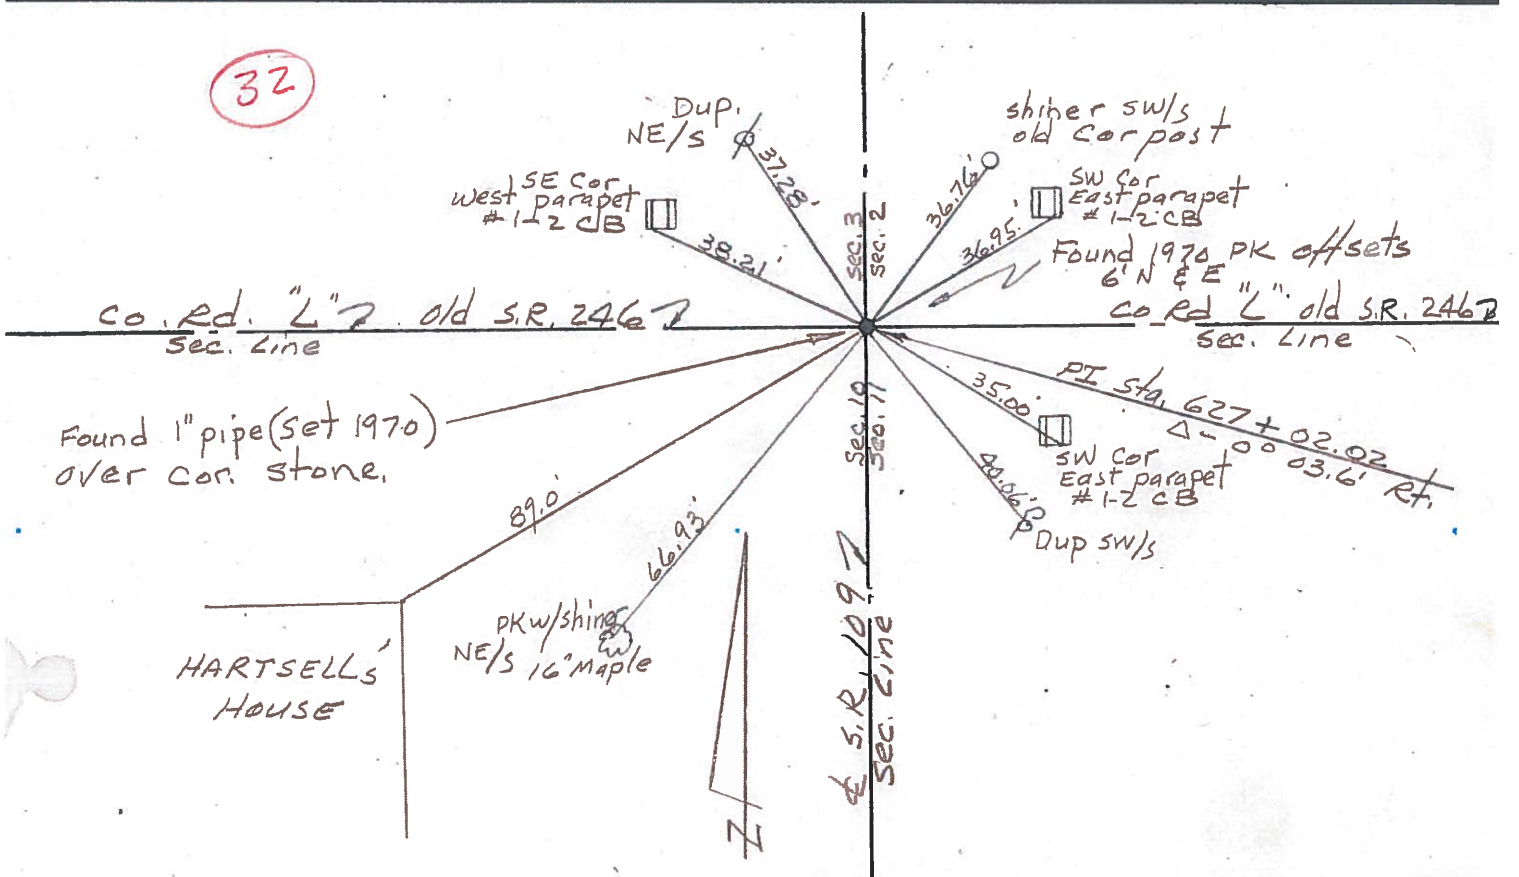 32
Dup.
NE/S
37.28'
shiner SW/S
old Cor post
36.76'
SE Cor
West parapet
# 1-2 CB
38.21'
SW Cor
East parapet
# 1-2 CB
36.95'
Sec. 3
Sec. 2
Found 1970 PK offsets
6' N & E
Co. Rd. "L" old S.R. 246
Sec. Line
Co Rd "L" old S.R. 246
Sec. Line
Found 1" pipe (set 1970)
over cor. stone.
PI sta. 627 + 02.02
Δ - 0° 03.6' Rt.
35.00'
SW Cor
East parapet
# 1-2 CB
Sec. 10
Sec. 11
40.06'
Dup SW/S
89.0'
66.93'
PK w/shiner
NE/S 16" Maple
HARTSELLS'
HOUSE
℄ S.R. 109
Sec. Line
N